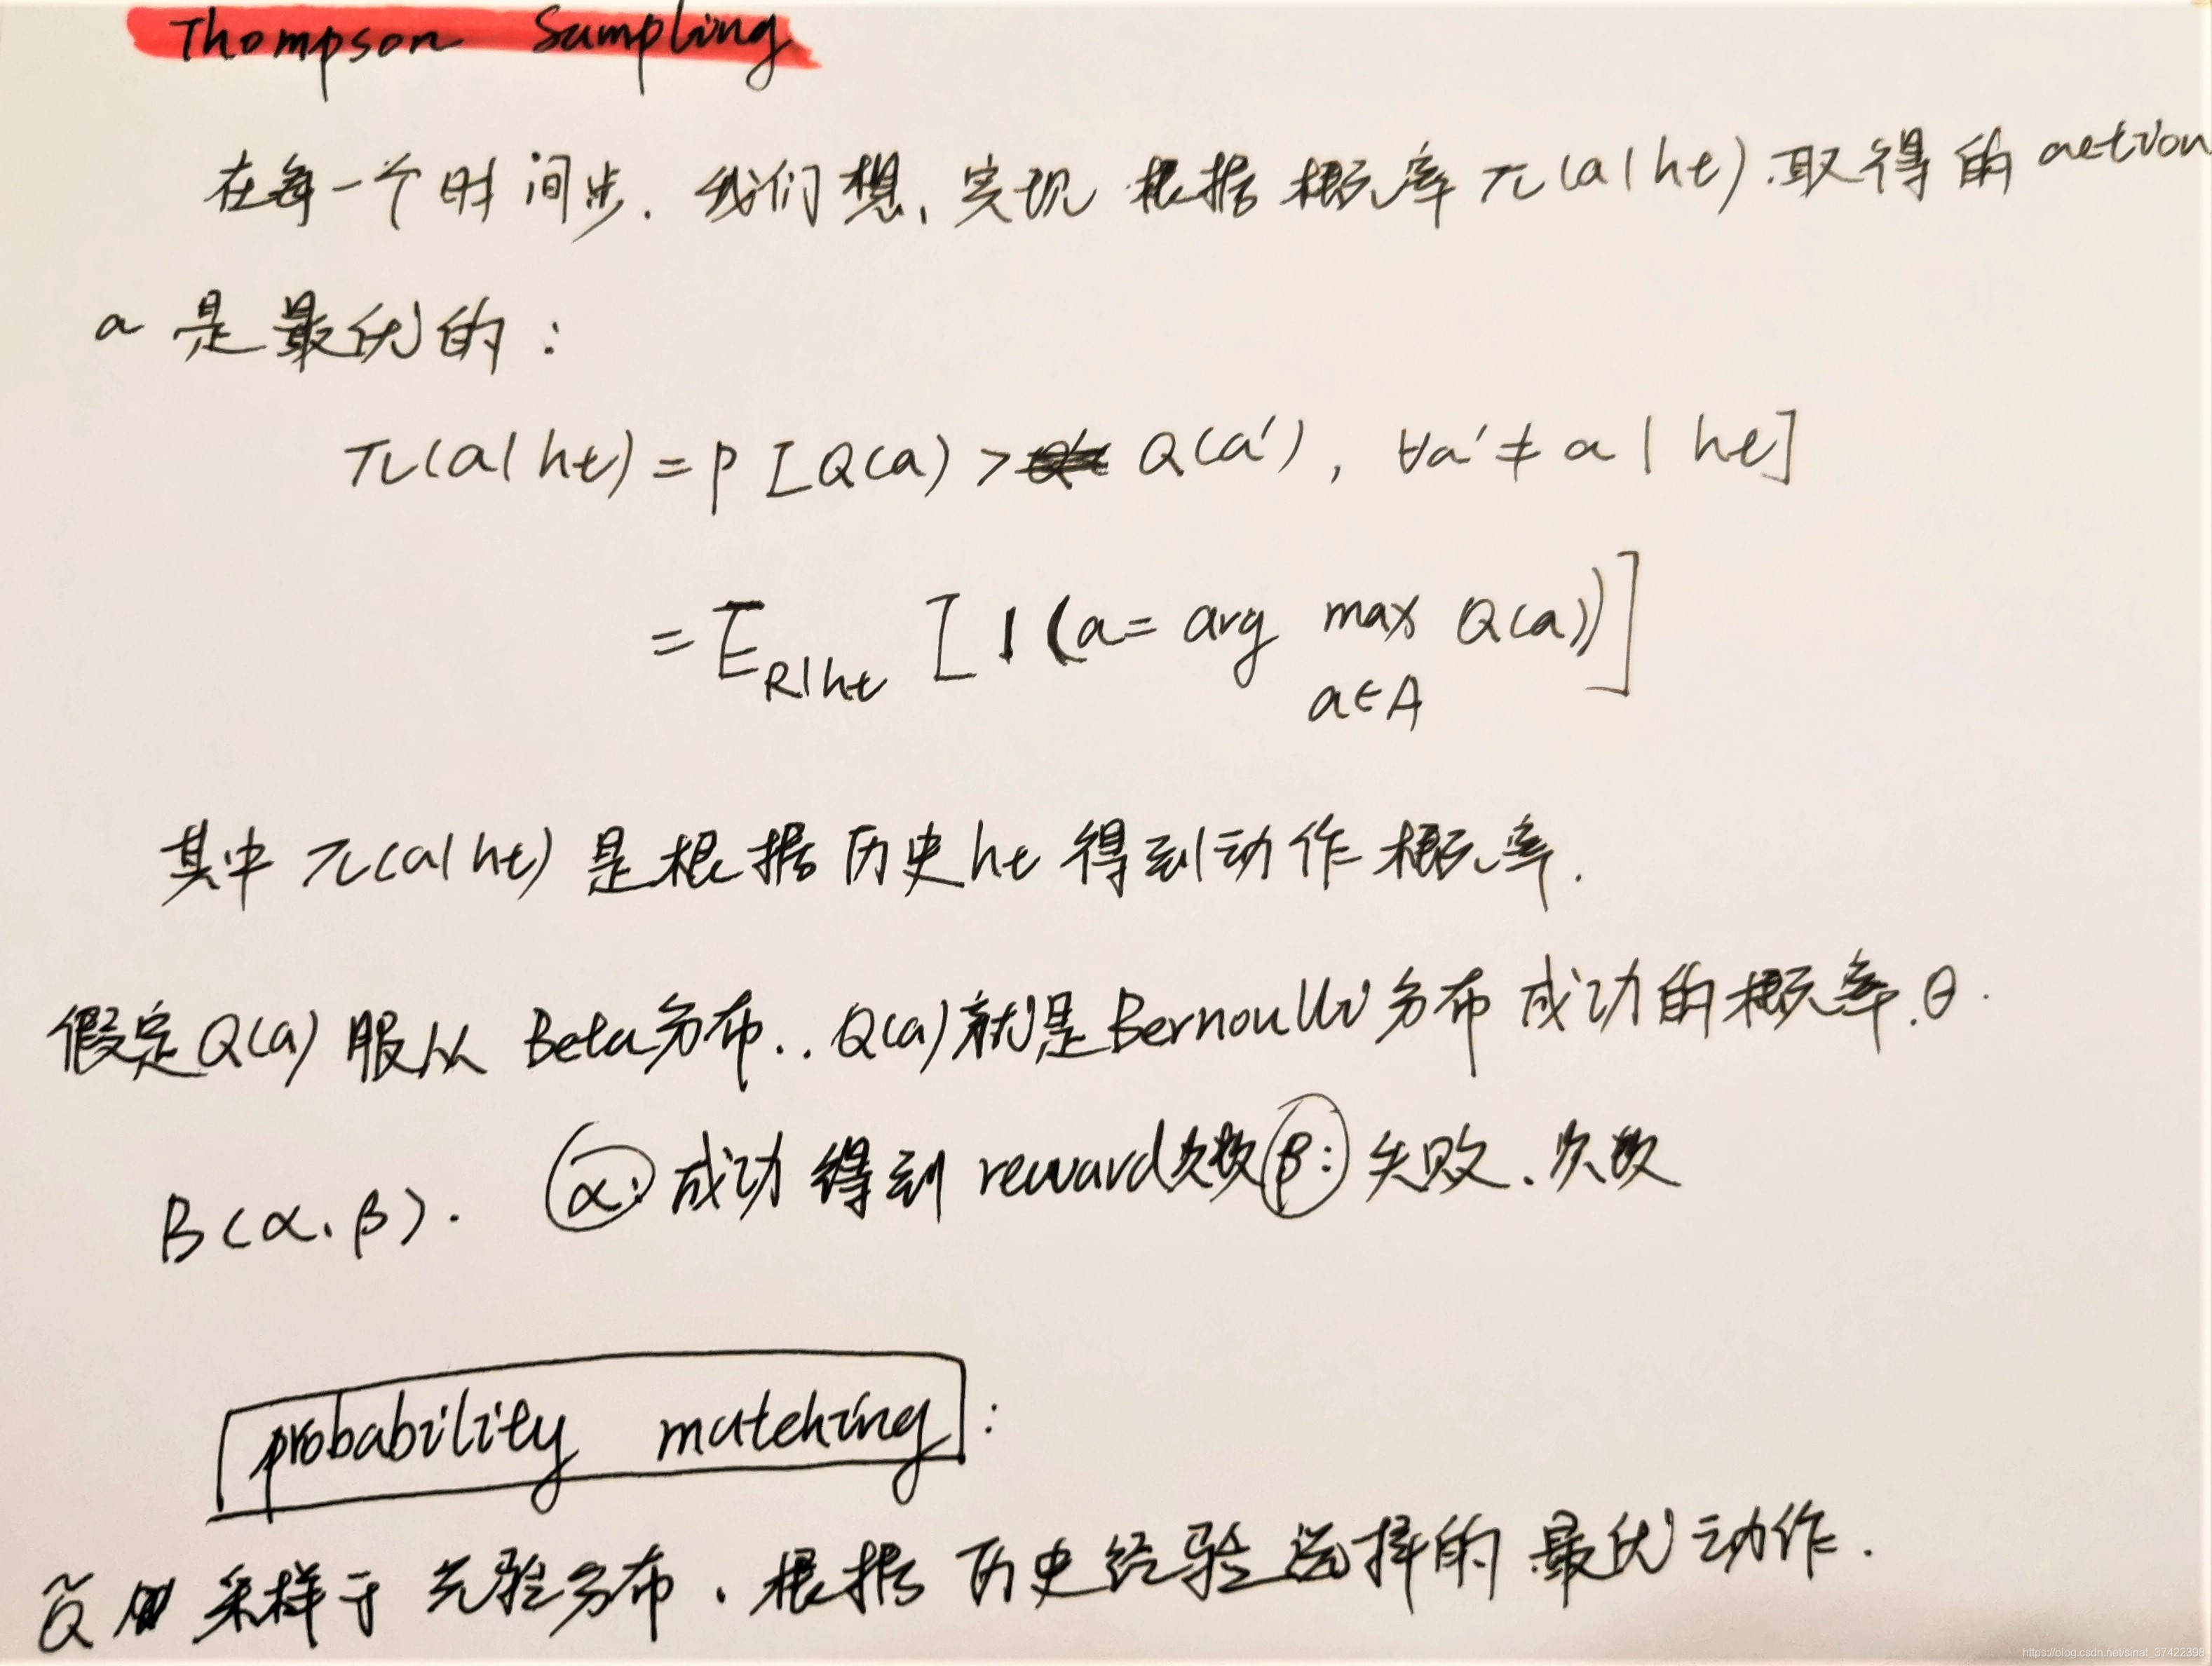 Thompson Sampling
在每一个时间步. 我们想, 实现 根据 概率 π(a|ht) 取得的 action
a 是最优的:
π(a|ht) = p [Q(a) > Q(a'), ∀a' ≠ a | ht]
= E_{R|ht} [1 (a = arg max Q(a))]
a∈A
其中 π(a|ht) 是根据历史 ht 得到动作概率.
假定 Q(a) 服从 Beta分布.. Q(a) 就是Bernoulli分布 成功的概率.θ.
B(α, β). α: 成功得到 reward次数 β: 失败.次数
probability matching :
Q̃ 采样于 先验分布. 根据 历史经验选择的 最优动作.
https://blog.csdn.net/sinat_37422398